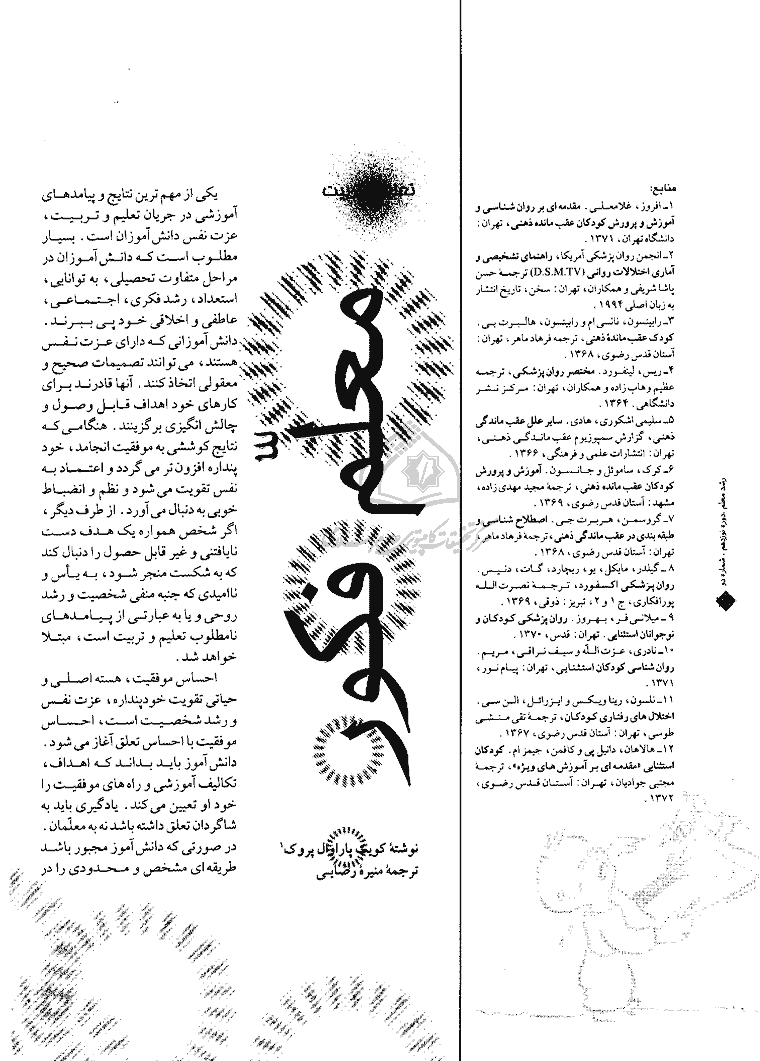 منابع:
۱ـ افروز، غلامعلی. مقدمه ای بر روان شناسی و
آموزش و پرورش کودکان عقب مانده ذهنی، تهران:
دانشگاه تهران، ۱۳۷۱.
۲ـ انجمن روان پزشکی آمریکا، راهنمای تشخیصی و
آماری اختلالات روانی (D.S.M.TV) ترجمهٔ حسن
پاشا شریفی و همکاران، تهران: سخن، تاریخ انتشار
به زبان اصلی ۱۹۹۴.
۳ـ رابینسون، نانسی ام و رابینسون، هالبرت بی.
کودک عقب ماندهٔ ذهنی، ترجمه فرهاد ماهر، تهران:
آستان قدس رضوی، ۱۳۶۸.
۴ـ ریس، لینفورد. مختصر روان پزشکی، ترجمه
عظیم وهاب زاده و همکاران، تهران: مرکز نشر
دانشگاهی. ۱۳۶۴.
۵ـ سلیمی اشکوری، هادی. سایر علل عقب ماندگی
ذهنی، گزارش سمپوزیوم عقب ماندگی ذهنی،
تهران: انتشارات علمی و فرهنگی، ۱۳۶۶.
۶ـ کرک، ساموئل و جانسون. آموزش و پرورش
کودکان عقب مانده ذهنی، ترجمهٔ مجید مهدی زاده،
مشهد: آستان قدس رضوی، ۱۳۶۹.
۷ـ گروسمن، هربرت جی. اصطلاح شناسی و
طبقه بندی در عقب ماندگی ذهنی، ترجمهٔ فرهاد ماهر،
تهران: آستان قدس رضوی، ۱۳۶۸.
۸ـ گیلدر، مایکل، یو، ریچارد، گات، دنیس.
روان پزشکی اکسفورد، ترجمهٔ نصرت الله
پورافکاری، ج ۱ و ۲، تبریز: ذوقی، ۱۳۶۹.
۹ـ میلانی فر، بهروز. روان پزشکی کودکان و
نوجوانان استثنایی. تهران: قدس، ۱۳۷۰.
۱۰ـ نادری، عزت اللّه و سیف نراقی، مریم.
روان شناسی کودکان استثنایی، تهران: پیام نور،
۱۳۷۱.
۱۱ـ نلسون، ریتا ویکس و ایزرائل، الن سی.
اختلال های رفتاری کودکان، ترجمهٔ تقی منشی
طوسی، تهران: آستان قدس رضوی، ۱۳۶۷.
۱۲ـ هالاهان، دانیل پی و کافمن، جیمز ام. کودکان
استثنایی «مقدمه ای بر آموزش های ویژه»، ترجمهٔ
مجتبی جوادیان، تهران: آستان قدس رضوی،
۱۳۷۲.
رشد معلم. دوره نوزدهم. شماره دو
معلّم فکور
نوشتهٔ کویتی پاراوال پروک۱
ترجمهٔ منیره رضایی
یکی از مهم ترین نتایج و پیامدهای
آموزشی در جریان تعلیم و تربیت،
عزت نفس دانش آموزان است. بسیار
مطلوب است که دانش آموزان در
مراحل متفاوت تحصیلی، به توانایی،
استعداد، رشد فکری، اجتماعی،
عاطفی و اخلاقی خود پی ببرند.
دانش آموزانی که دارای عزت نفس
هستند، می توانند تصمیمات صحیح و
معقولی اتخاذ کنند. آنها قادرند برای
کارهای خود اهداف قابل وصول و
چالش انگیزی برگزینند. هنگامی که
نتایج کوششی به موفقیت انجامد، خود
پنداره افزون تر می گردد و اعتماد به
نفس تقویت می شود و نظم و انضباط
خوبی به دنبال می آورد. از طرف دیگر،
اگر شخص همواره یک هدف دست
نایافتنی و غیر قابل حصول را دنبال کند
که به شکست منجر شود، به یأس و
ناامیدی که جنبه منفی شخصیت و رشد
روحی و یا به عبارتی از پیامدهای
نامطلوب تعلیم و تربیت است، مبتلا
خواهد شد.
احساس موفقیت، هسته اصلی و
حیاتی تقویت خودپنداره، عزت نفس
و رشد شخصیت است، احساس
موفقیت با احساس تعلق آغاز می شود.
دانش آموز باید بداند که اهداف،
تکالیف آموزشی و راه های موفقیت را
خود او تعیین می کند. یادگیری باید به
شاگردان تعلق داشته باشد نه به معلّمان.
در صورتی که دانش آموز مجبور باشد
طریقه ای مشخص و محدودی را در